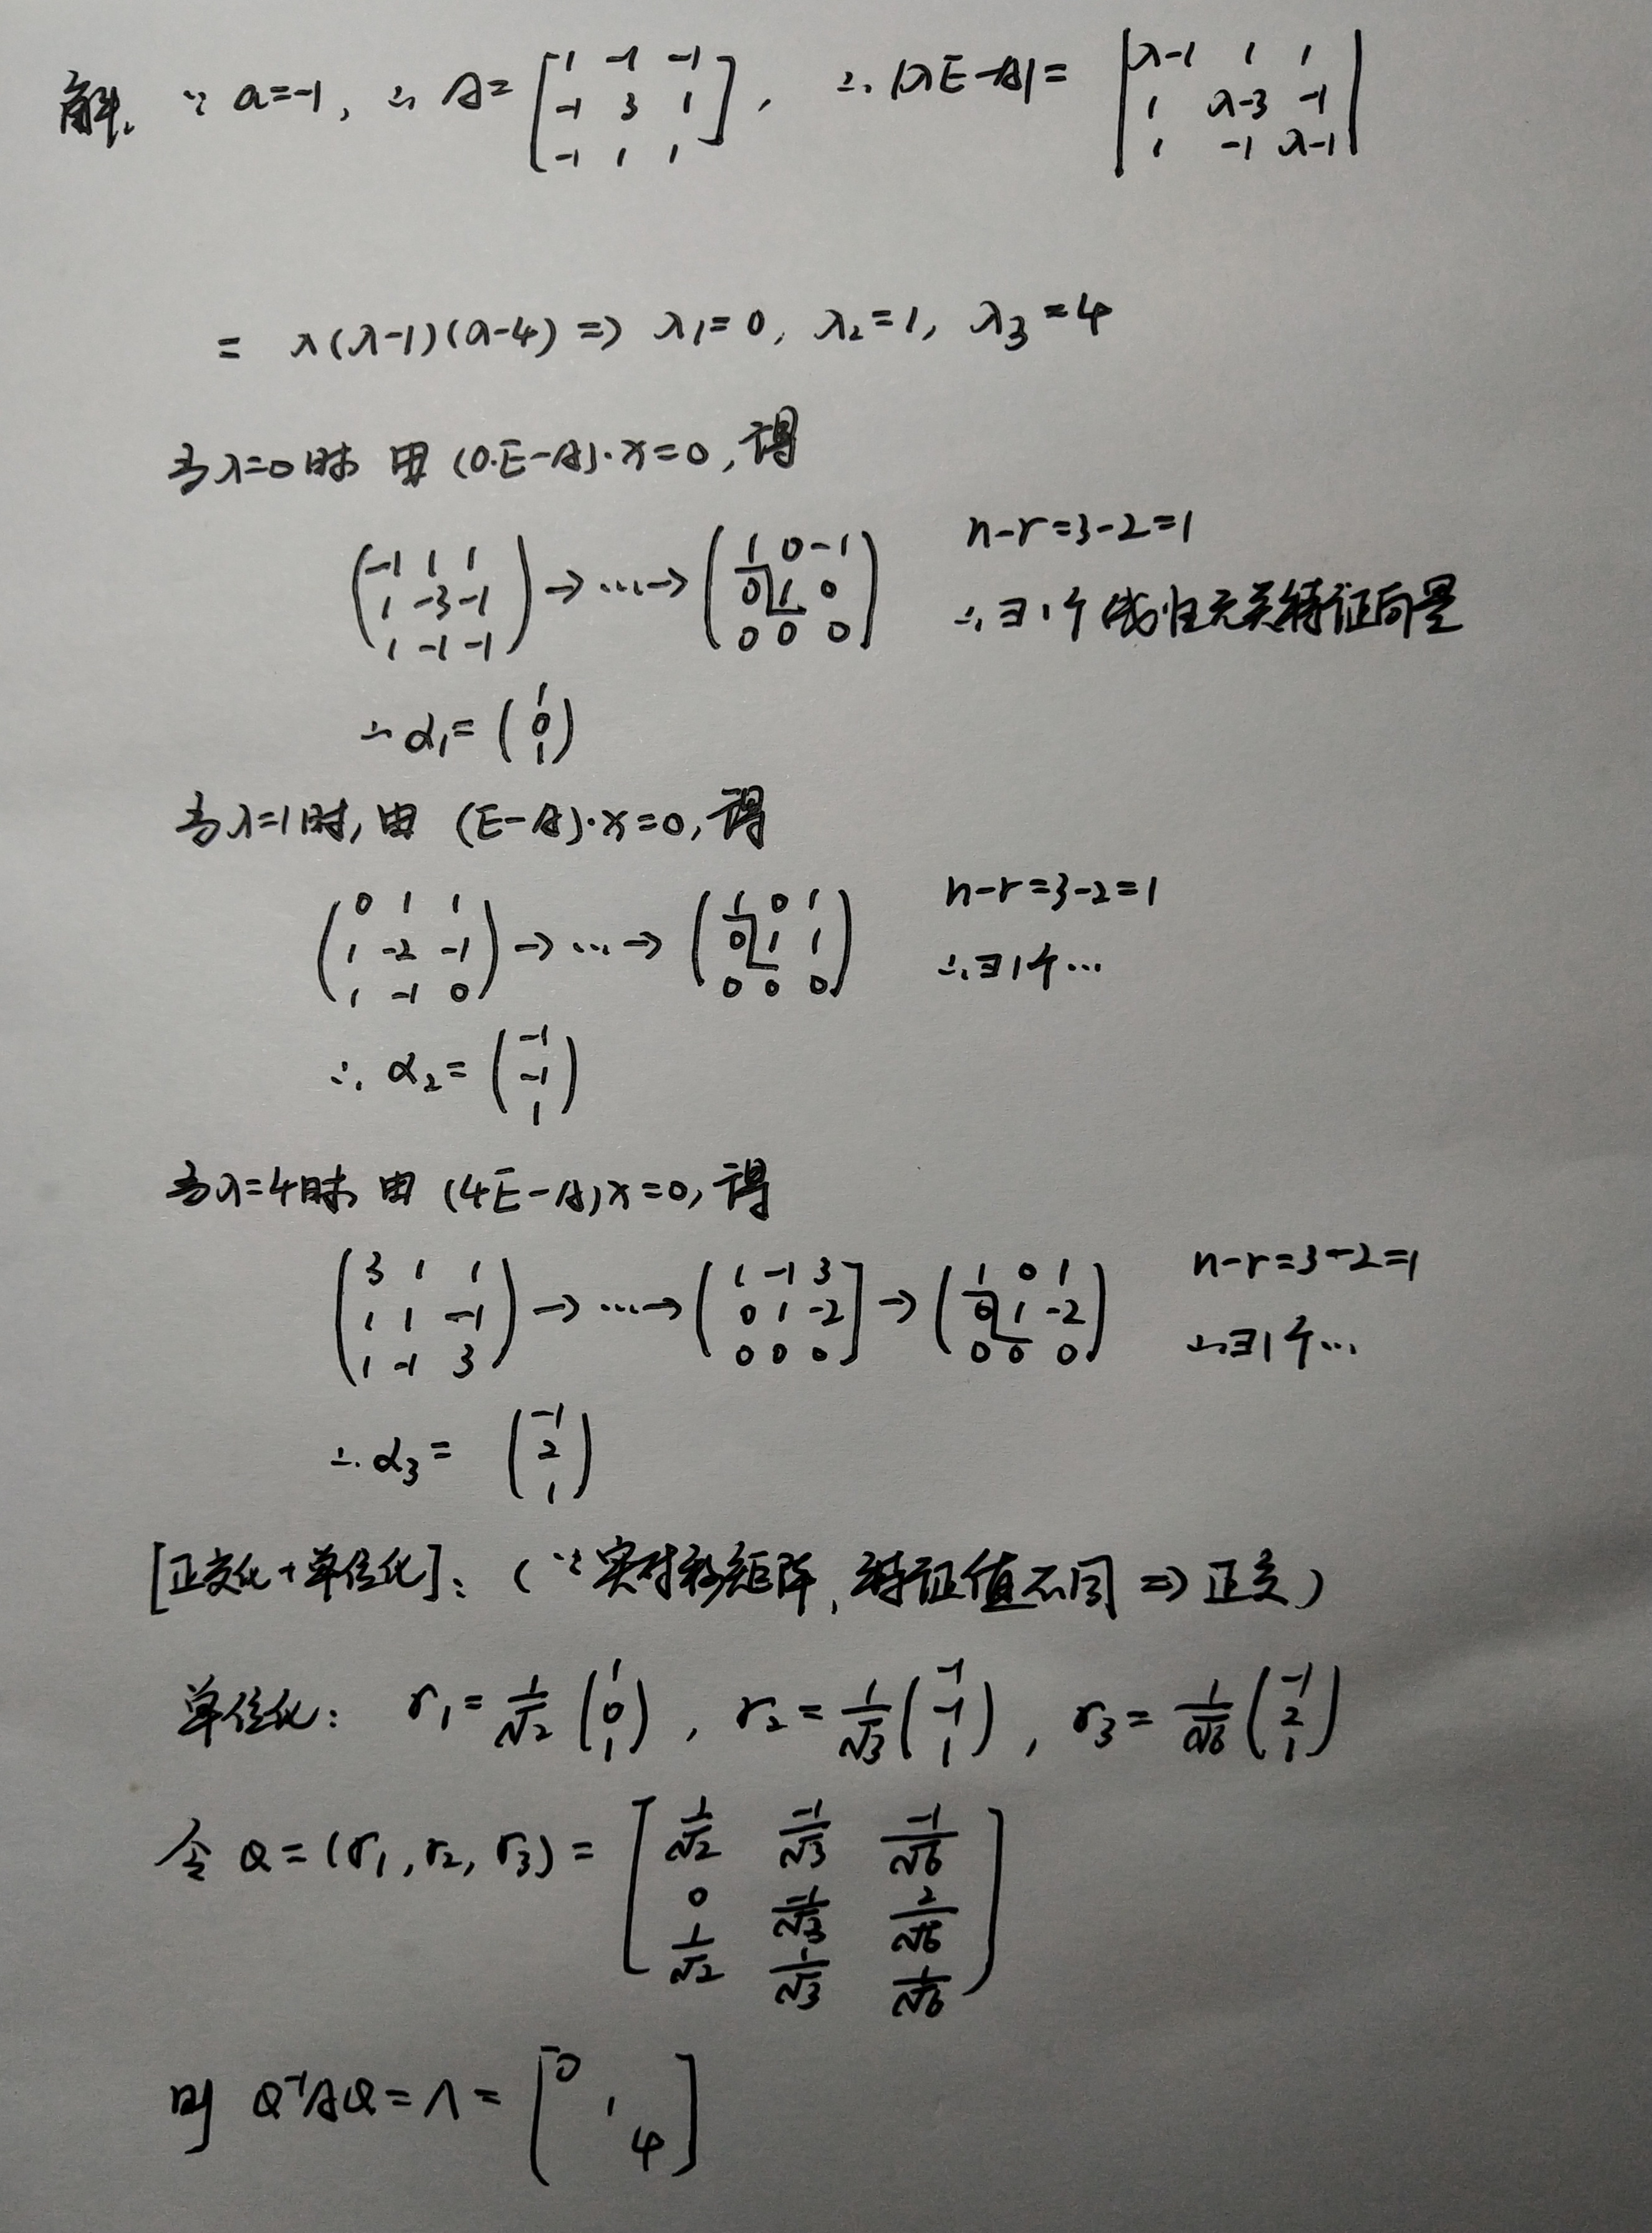 解. ∵ a=-1, ∴ A=[1 -1 -1; -1 3 1; -1 1 1], ∴ |λE-A|=|λ-1 1 1; 1 λ-3 -1; 1 -1 λ-1|
= λ(λ-1)(λ-4) ⇒ λ1=0, λ2=1, λ3=4
当λ=0时 由 (0·E-A)·x=0,得
(-1 1 1; 1 -3 -1; 1 -1 -1) → … → (1 0 -1; 0 1 0; 0 0 0) n-r=3-2=1
∴∃1个线性无关特征向量
∴α1=(1; 0; 1)
当λ=1时,由 (E-A)·x=0,得
(0 1 1; 1 -2 -1; 1 -1 0) → … → (1 0 1; 0 1 1; 0 0 0) n-r=3-2=1
∴∃1个…
∴ α2=(-1; -1; 1)
当λ=4时 由 (4E-A)x=0,得
(3 1 1; 1 1 -1; 1 -1 3) → … → (1 -1 3; 0 1 -2; 0 0 0] → (1 0 1; 0 1 -2; 0 0 0) n-r=3-2=1
∴∃1个…
∴α3=(-1; 2; 1)
[正交化+单位化]: (∵实对称矩阵,特征值不同 ⇒ 正交)
单位化: r1=1/√2 (1; 0; 1), r2=1/√3 (-1; -1; 1), r3=1/√6 (-1; 2; 1)
令 Q=(r1, r2, r3)=[1/√2 -1/√3 -1/√6; 0 -1/√3 2/√6; 1/√2 1/√3 1/√6]
则 Q⁻¹AQ=Λ=[0 1 4]